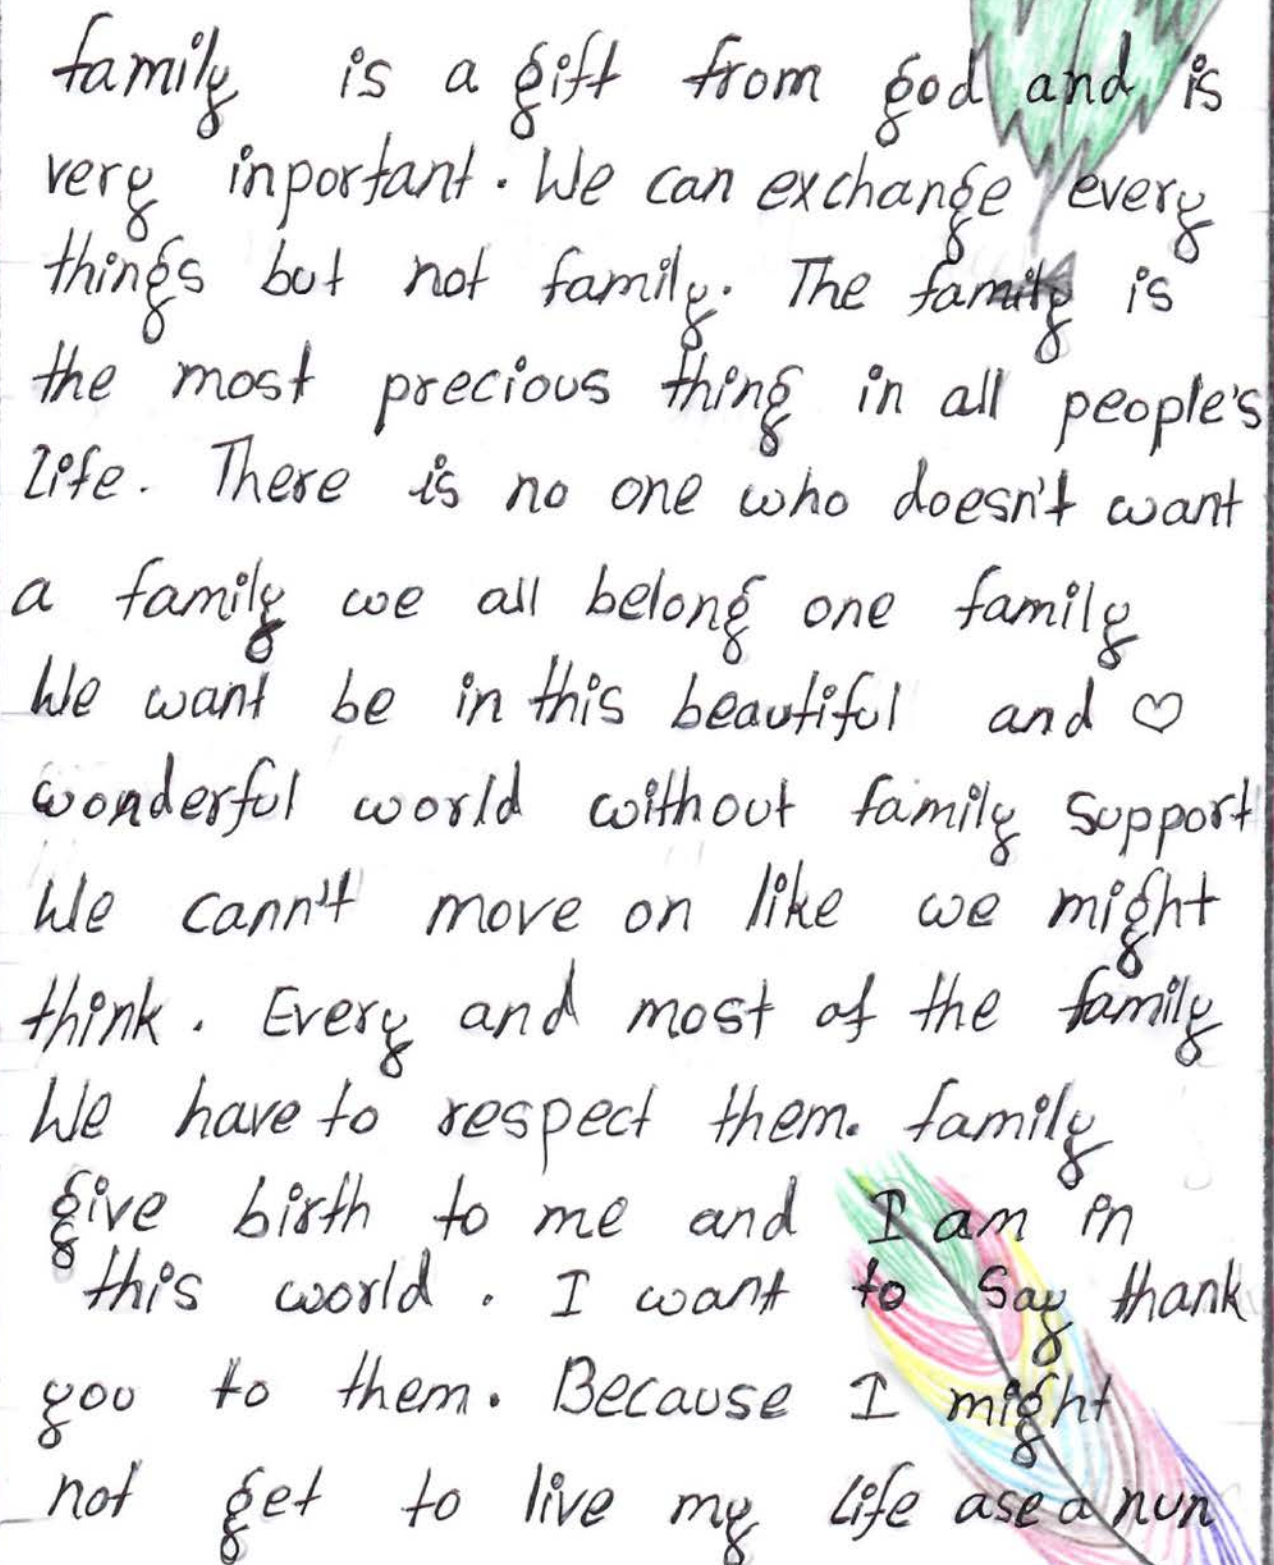 family is a gift from god and is
very inportant. We can exchange every
things but not family. The family is
the most precious thing in all people's
life. There is no one who doesn't want
a family we all belong one family
We want be in this beautiful and ♡
wonderful world without family support
We cann't move on like we might
think. Every and most of the family
We have to respect them. family
give birth to me and I am in
this world. I want to say thank
you to them. Because I might
not get to live my life ase a nun